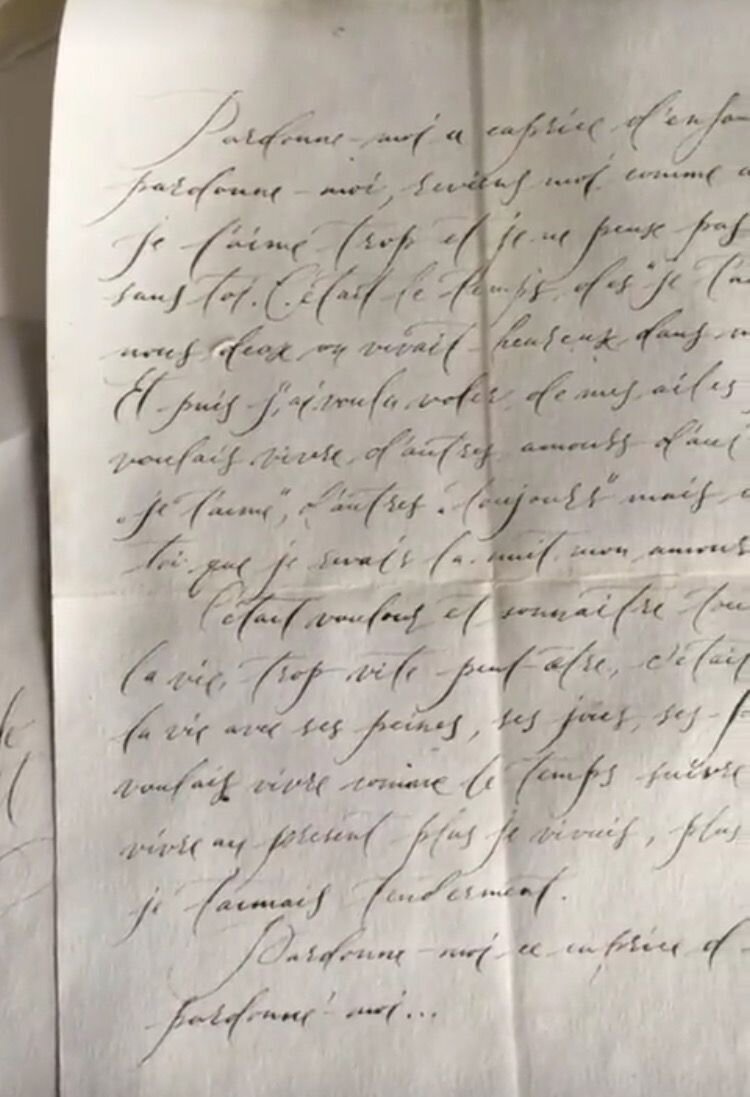 Pardonne-moi ce caprice d'enfan
pardonne-moi, reviens moi comme a
je t'aime trop et je ne peux pas
sans toi. C'était le temps des "je t'ai
nous deux on vivait heureux dans n
Et puis j'ai voulu voler de mes ailes
voulais vivre d'autres amours d'aut
"je t'aime", d'autres "toujours" mais c
toi que je rêvais la nuit mon amour
C'était vouloir et connaître tou
la vie, trop vite peut-être, c'était
la vie avec ses peines, ses joies, ses f
voulais vivre comme le temps suivre
vivre au présent plus je vivais, plus
je t'aimais tenderment.
Pardonne-moi ce caprice d'
pardonne-moi...